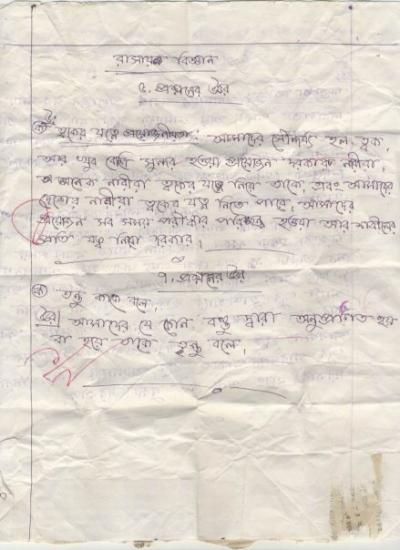 রাসায়ক বিজ্ঞান
৫. প্রশ্নের উঃর
ক) ত্বকের যত্নে প্রয়োজনীয়তা: আমাদের সৌন্দর্য হল, ত্বক,
আর খুব বেশি সুন্দর হওয়া প্রয়োজন দরকার। নারীরা
অনেক নারীরা ত্বকের যত্ন নিয়ে থাকে, এবং আমাদের
নারীরা ত্বকের যত্ন নিতে পারে, আমাদের
প্রয়োজন সব সময় পরিষ্কার হওয়া আর শরীরের
প্রতি যত্ন নিয়া দরকার।
৭. প্রশ্নের উঃর
ক) তন্তু কাকে বলে,
উঃর আমাদের যে কোন বস্তু দ্বারা অনুপ্রানিত হয়
বা হবে তাকে তন্তু বলে,